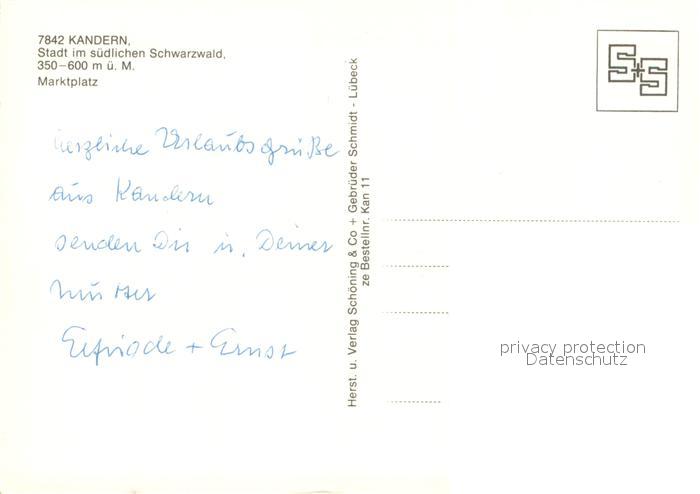 7842 KANDERN,
Stadt im südlichen Schwarzwald,
350–600 m ü. M.
Marktplatz
herzliche Urlaubsgrüße
aus Kandern
senden Dir u. Deiner
Mutter
Elfriede + Ernst
Herst. u. Verlag Schöning & Co + Gebrüder Schmidt - Lübeck
ze Bestellnr. Kan 11
S+S
privacy protection
Datenschutz